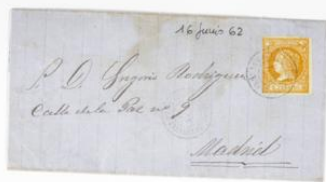 16 junio 62
S. D. Eugenio Rodriguez
Calle de la Paz nº 9
Madrid